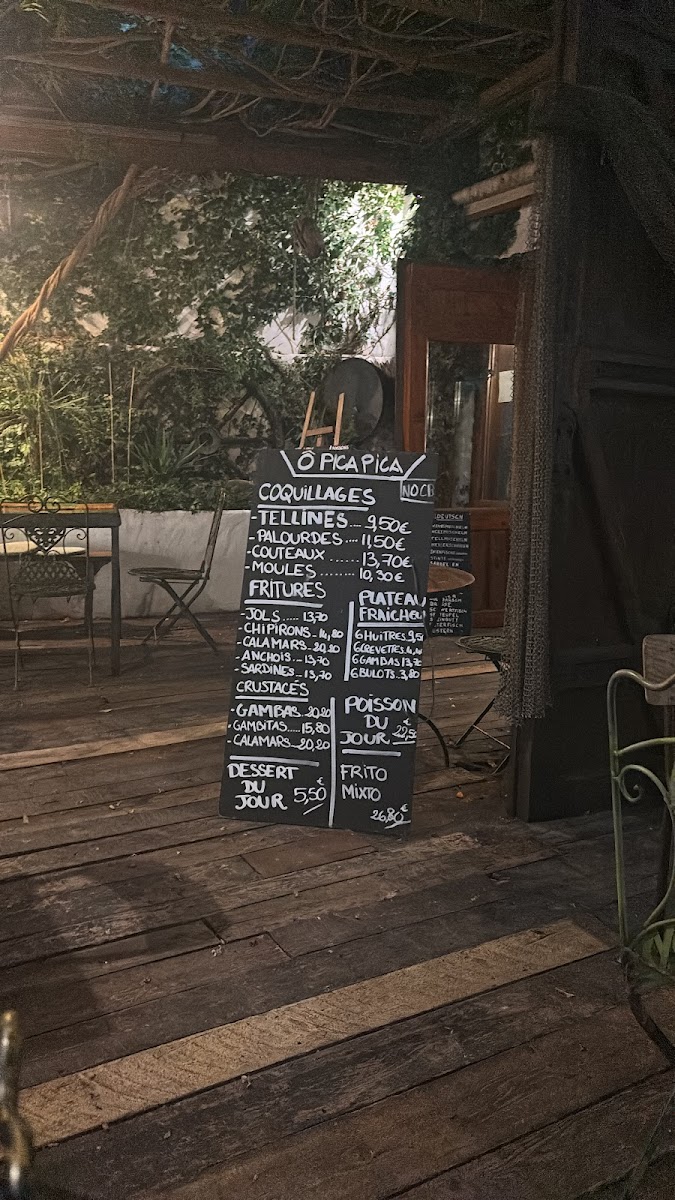 Ô PICA PICA
NO CB
COQUILLAGES
-TELLINES.... 9,50€
-PALOURDES.... 11,50€
-COUTEAUX ...... 13,70€
-MOULES ........ 10,30€
FRITURES
-JOLS..... 13,70
-CHIPIRONS. 14,80
-CALAMARS.. 20,20
-ANCHOIS... 13,70
-SARDINES.. 13,70
PLATEAU
FRAICHEUR
6 HUITRES. 9,50
6 CREVETTES.
6 GAMBAS 13,70
6 BULOTS. 3,80
CRUSTACÉS
-GAMBAS.. 20,20
-GAMBITAS..... 15,80
-CALAMARS... 20,20
POISSON
DU
JOUR
DESSERT
DU
JOUR 5,50€
FRITO
MIXTO
26,80€
DEUTSCH